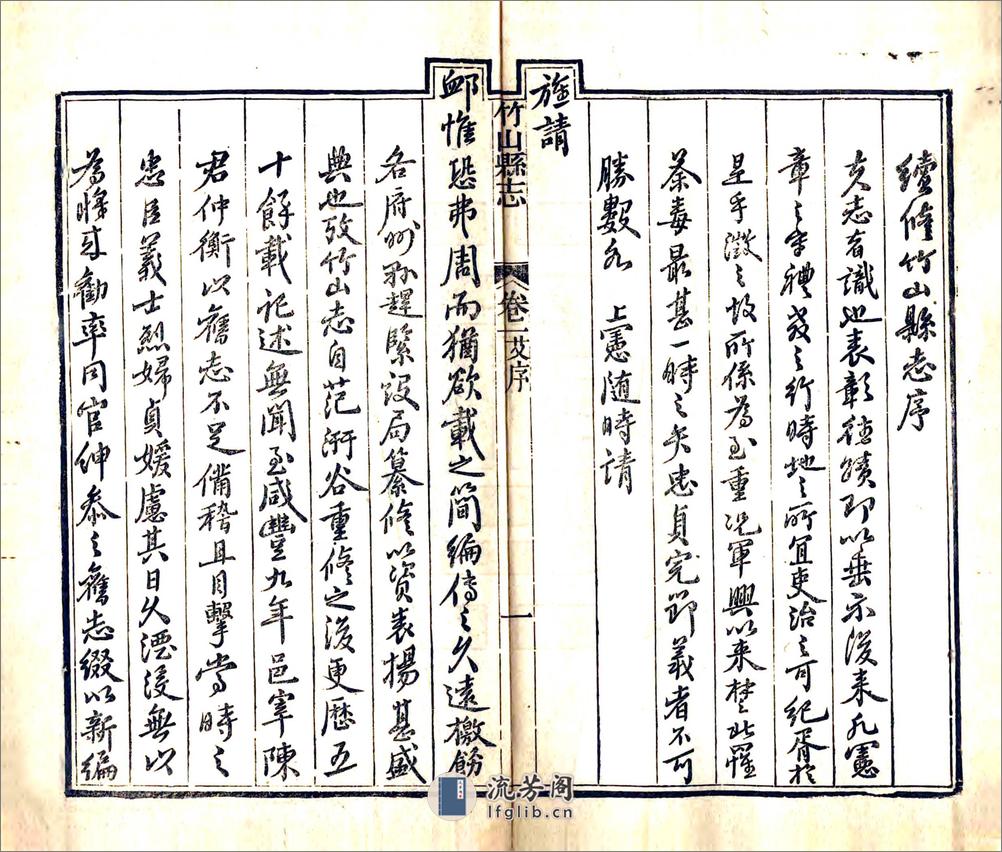 續修竹山縣志序
夫志者識也表彰德蹟即以垂示後来凡憲
章之守禮教之行時地之所宜吏治之可紀胥於
是乎徵之故所係為至重况軍興以来楚北罹
荼毒最甚一時之矢忠貞完節義者不可
勝數列上憲随時請
旌請
卹惟恐弗周而猶欲載之簡編傳之久遠檄飭
各府州縣趕緊設局纂修以資表揚甚盛
典也攷竹山志自范谷重修之後更歷五
十餘載記述無聞至咸豐九年邑宰陳
君仲衡以舊志不足備稽且目擊當時之
忠臣義士烈婦貞媛慮其日久湮没無以
為將来勸率同官紳叅之舊志綴以新編
竹山縣志
卷一
序
一
流芳阁
lfglib.cn